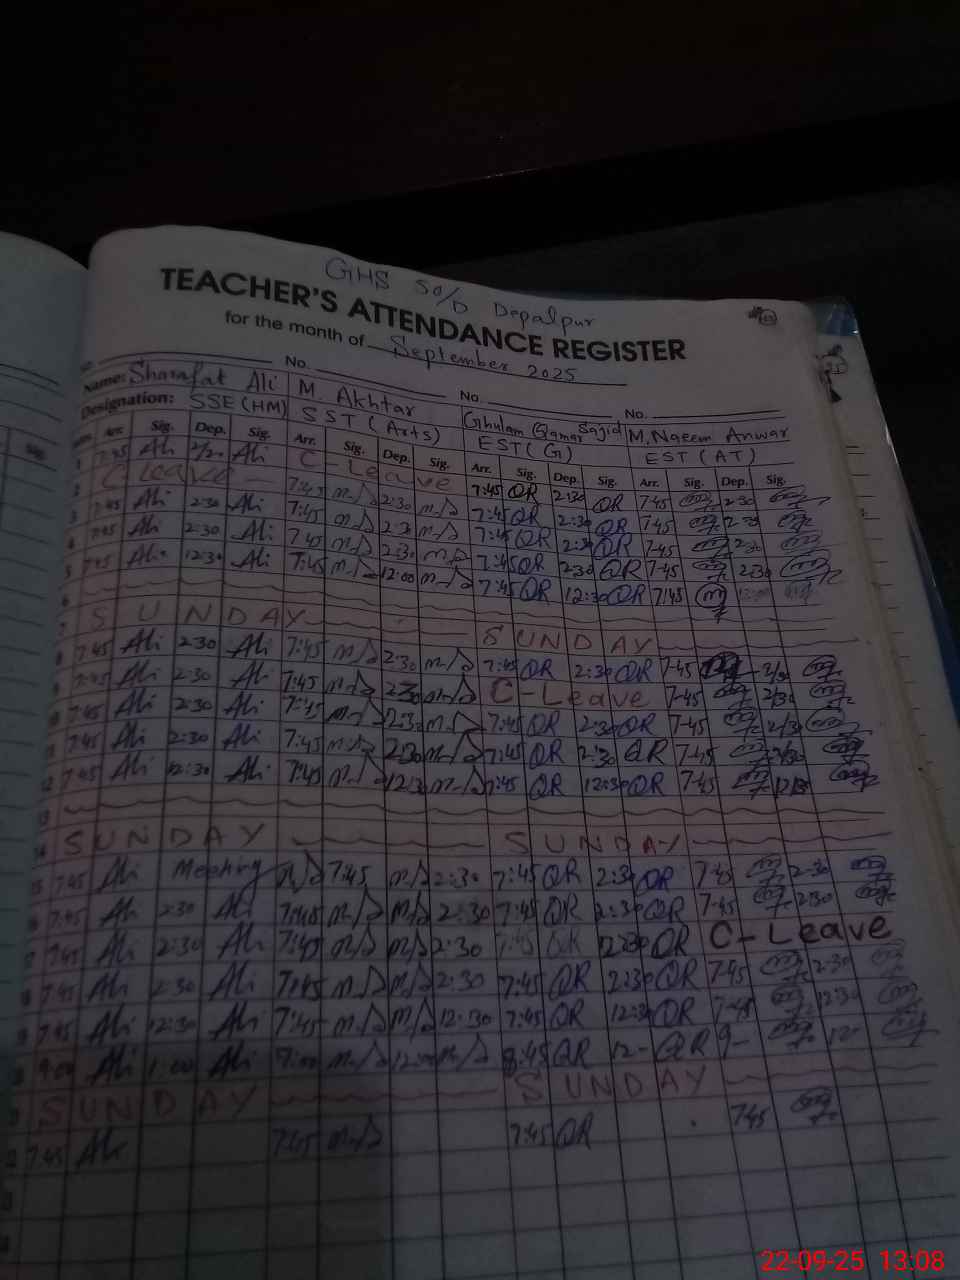 GHS 50/D Depalpur
TEACHER'S ATTENDANCE REGISTER
for the month of September 2025
No. No. No.
Name: Sharafat Ali M. Akhtar Ghulam Qamar Sajid M. Naeem Anwar
Designation: SSE (HM) SST (Arts) EST (G) EST (AT)
Arr. Sig. Dep. Sig. Arr. Sig. Dep. Sig. Arr. Sig. Dep. Sig. Arr. Sig. Dep. Sig.
1 7:45 Ali Ali C-Leave 7:45 QR 2:30 QR 7-45 2-30
2 C-Leave 7:45 2:30 7:45 QR 2:30 QR 7-45 2-30
3 7:45 Ali 2:30 Ali 7:45 2:30 7:45 QR 2:30 QR 7-45 2-30
4 7:45 Ali 2:30 Ali 7:45 2:30 7:45 QR 2:30 QR 7-45 2-30
5 7:45 Ali 12:30 Ali 7:45 12:00 7:45 QR 12:30 QR 7:45
6
7 SUNDAY SUNDAY
8 7:45 Ali 2:30 Ali 7:45 2:30 7:45 QR 2:30 QR 7-45
9 7:45 Ali 2:30 Ali 7:45 2:30 C-Leave 7-45 2/30
10 7:45 Ali 2:30 Ali 7:45 2:30 7:45 QR 2:30 QR 7-45 2/30
11 7:45 Ali 2:30 Ali 7:45 2:30 7:45 QR 2:30 QR 7-45
12 7:45 Ali 12:30 Ali 7:45 7:45 QR 12:30 QR 7-45
13
14 SUNDAY SUNDAY
15 7:45 Ali Meeting 7:45 2:30 7:45 QR 2:30 QR 7-45 2-30
16 7:45 Ali 2:30 Ali 7:45 2:30 7:45 QR 2:30 QR 7-45 2-30
7:45 Ali 2:30 Ali 7:45 2:30 7:45 QR 2:30 QR C-Leave
7:45 Ali 2:30 Ali 7:45 2:30 7:45 QR 2:30 QR 7-45 2-30
7:45 Ali 12:30 Ali 7:45 12:30 7:45 QR 12:30 QR 7-45 12:30
9:00 Ali 1:00 Ali 9:00 12:00 8:45 QR 12- QR 9- 12-
SUNDAY SUNDAY
7:45 Ali 7:45 7:45 QR 7:45
22-09-25 13:08